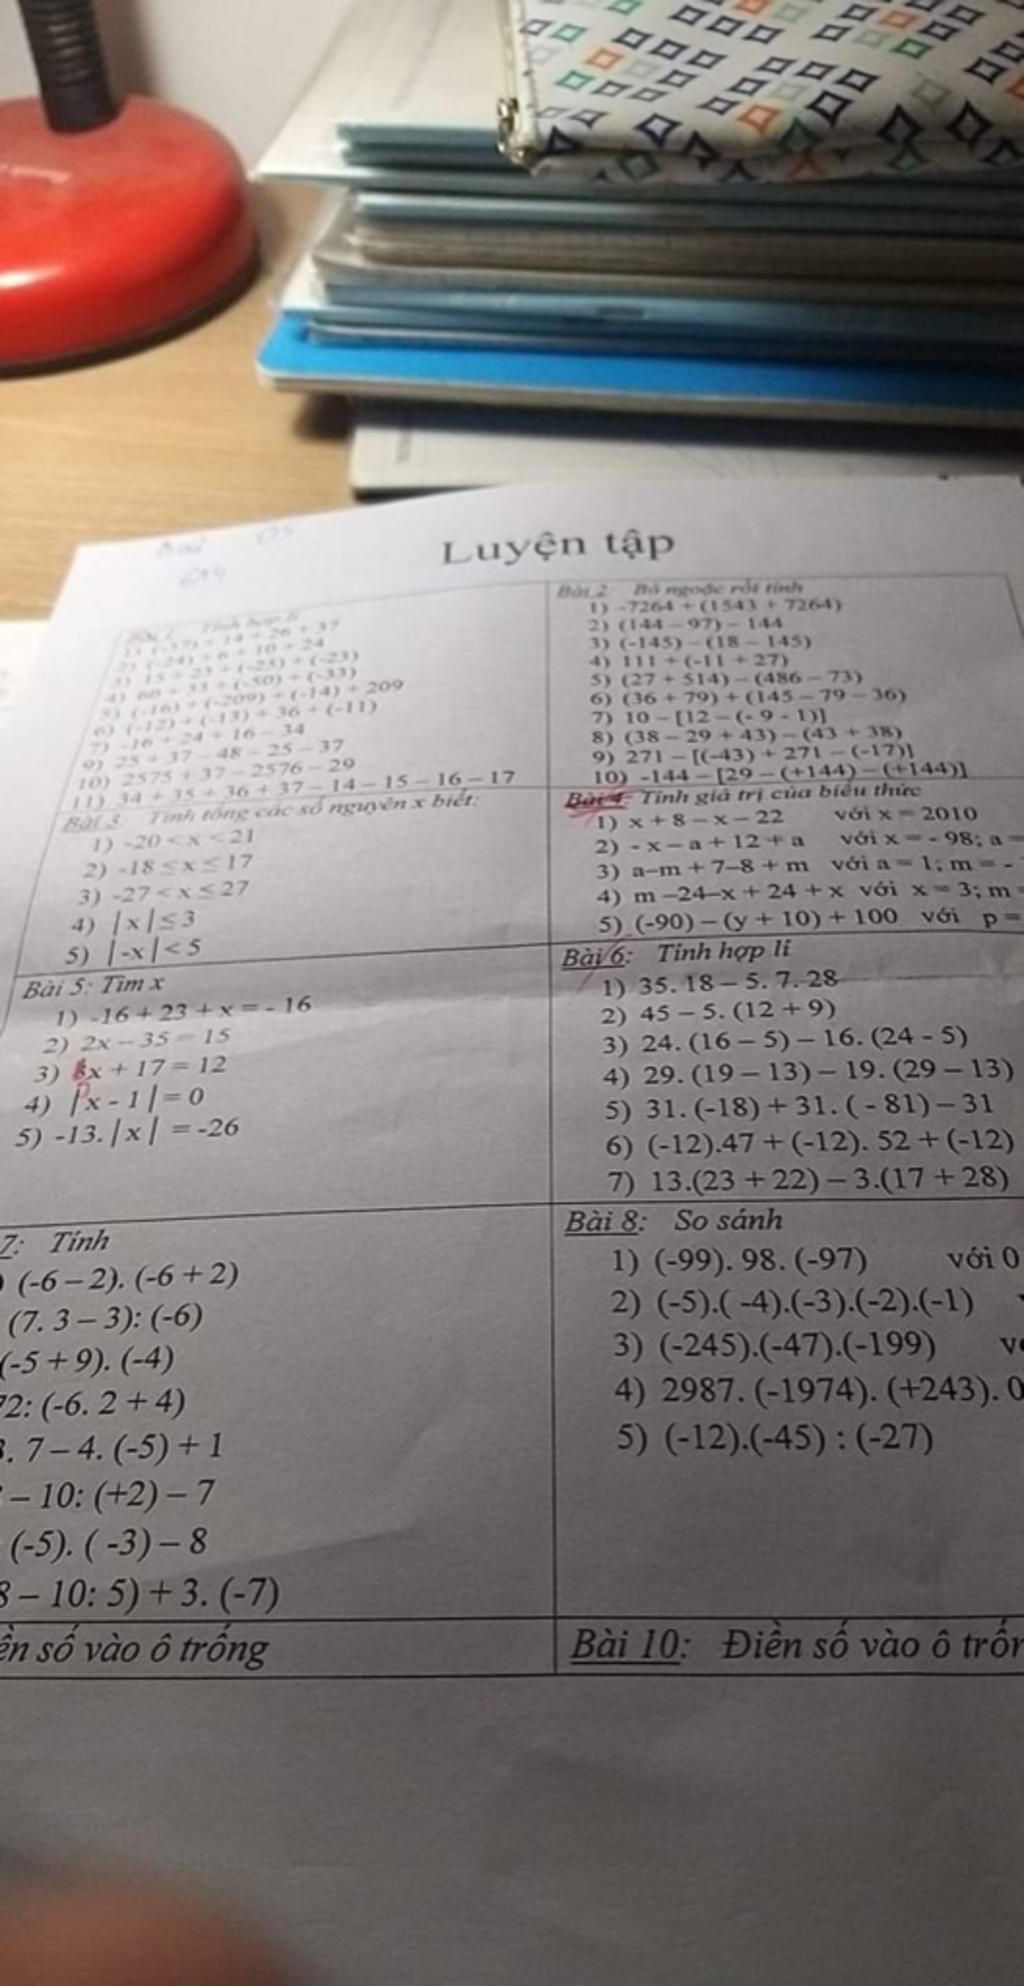 Luyện tập
1) (-37) + 14 + 26 + 37
2) (-24) + 6 + 10 + 24
3) 15 + 23 + (-25) + (-23)
4) 60 + 33 + (-50) + (-33)
5) (-16) + (-209) + (-14) + 209
6) (-12) + (-13) + 36 + (-11)
7) -16 + 24 + 16 – 34
9) 25 + 37 – 48 – 25 – 37
10) 2575 + 37 – 2576 – 29
11) 34 + 35 + 36 + 37 – 14 – 15 – 16 – 17
Bài 2: Bỏ ngoặc rồi tính
1) -7264 + (1543 + 7264)
2) (144 – 97) – 144
3) (-145) – (18 – 145)
4) 111 + (-11 + 27)
5) (27 + 514) – (486 – 73)
6) (36 + 79) + (145 – 79 – 36)
7) 10 – [12 – (- 9 - 1)]
8) (38 – 29 + 43) – (43 + 38)
9) 271 – [(-43) + 271 – (-17)]
10) -144 – [29 – (+144) – (+144)]
Bài 3: Tính tổng các số nguyên x biết:
1) -20 < x < 21
2) -18 ≤ x ≤ 17
3) -27 < x ≤ 27
4) |x| ≤ 3
5) |-x| < 5
Bài 4: Tính giá trị của biểu thức
1) x + 8 – x – 22 với x = 2010
2) - x – a + 12 + a với x = - 98; a =
3) a–m + 7–8 + m với a = 1; m = -
4) m –24–x + 24 + x với x = 3; m =
5) (-90) – (y + 10) + 100 với p =
Bài 5: Tìm x
1) -16 + 23 + x = - 16
2) 2x – 35 = 15
3) 3x + 17 = 12
4) |x - 1| = 0
5) -13. |x| = -26
Bài 6: Tính hợp lí
1) 35. 18 – 5. 7. 28
2) 45 – 5. (12 + 9)
3) 24. (16 – 5) – 16. (24 - 5)
4) 29. (19 – 13) – 19. (29 – 13)
5) 31. (-18) + 31. ( - 81) – 31
6) (-12).47 + (-12). 52 + (-12)
7) 13.(23 + 22) – 3.(17 + 28)
7: Tính
(-6 – 2). (-6 + 2)
(7. 3 – 3): (-6)
(-5 + 9). (-4)
72: (-6. 2 + 4)
. 7 – 4. (-5) + 1
– 10: (+2) – 7
(-5). ( -3) – 8
8 – 10: 5) + 3. (-7)
Bài 8: So sánh
1) (-99). 98. (-97) với 0
2) (-5).( -4).(-3).(-2).(-1)
3) (-245).(-47).(-199)
4) 2987. (-1974). (+243). 0
5) (-12).(-45) : (-27)
số vào ô trống
Bài 10: Điền số vào ô